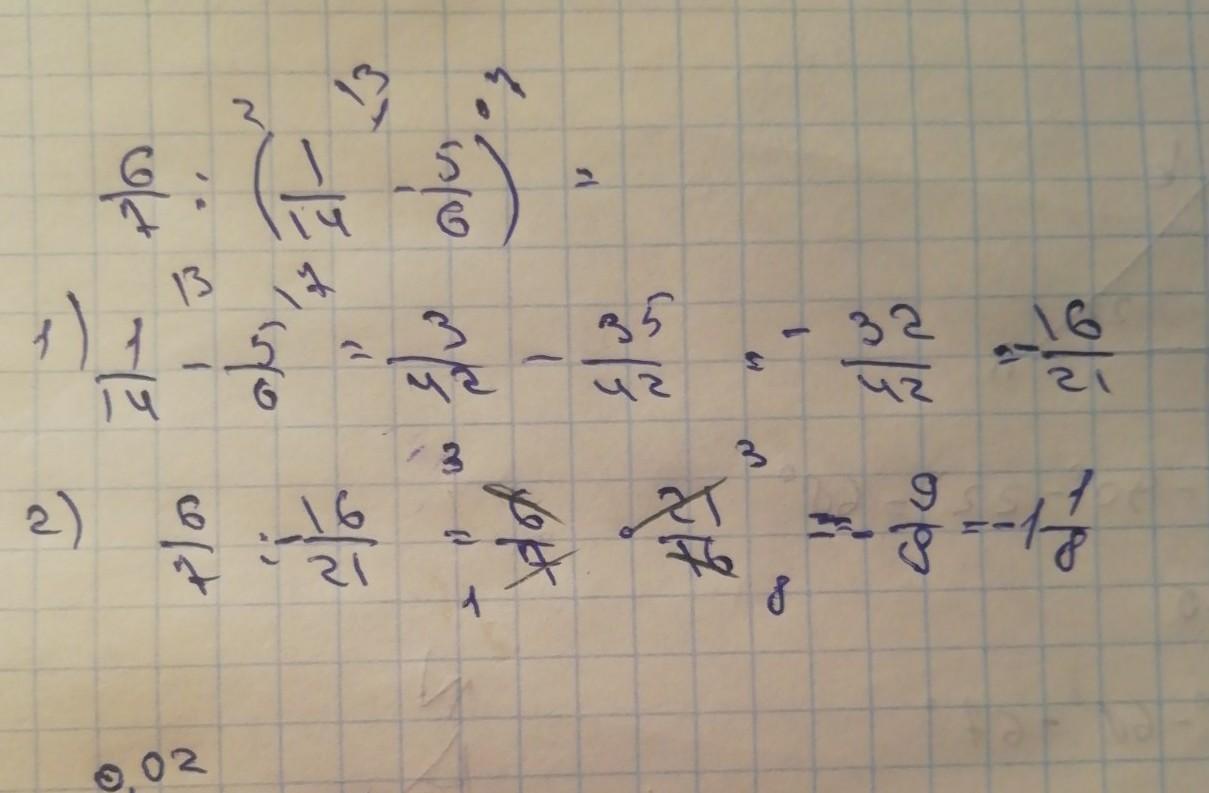 6/7 : (²1/14 \¹³ - 5/6 \⁷) =
1) 1/14 \¹³ - 5/6 \¹⁷ = 3/42 - 35/42 = - 32/42 = - 16/21
2) 6/7 : - 16/21 = ³6/7₁ · 21³/16₈ = - 9/8 = -1 1/8
0,02